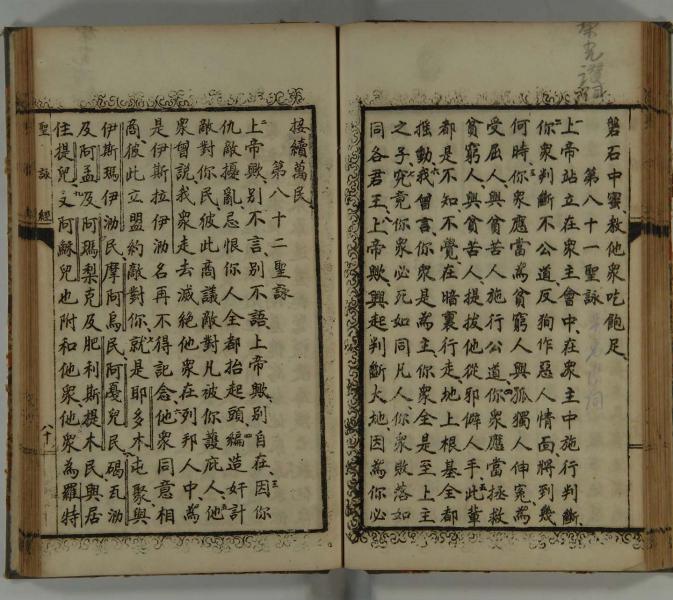 磐石中蜜教他衆吃飽足
第八十一聖詠
上帝站立在衆主會中在衆主中施行判斷
你衆判斷不公道反狥作惡人情面將到幾
何時你衆應當為貧窮人與孤獨人伸寃為
受屈人與貧苦人施行公道你衆應當拯救
貧窮人與貧苦人提拔他從邪僻人手此輩
都是不知不覺在暗裏行走地上根基全都
搖動我曾言你衆是為主你衆全是至上主
之子究竟你衆必死如同凡人你衆敗落如
同各君王上帝歟興起判斷大地因為你必
接續萬民
第八十二聖詠
上帝歟別不言別不語上帝歟別自在因你
仇敵擾亂忌恨你人全都抬起頭編造奸計
敵對你民彼此商議敵對凡被你護庇人他
衆曾說我衆走去滅絕他衆在列邦人中為
是伊斯拉伊泐名再不得記念他衆同意相
商彼此立盟約敵對你就是耶多木屯聚與
伊斯瑪伊泐民摩阿烏民阿憂兒民碣瓦泐
及阿孟及阿瑪梨克及肥利斯提木民與居
住提兒又阿穌兒也附和他衆他衆為羅特
聖詠經
八十